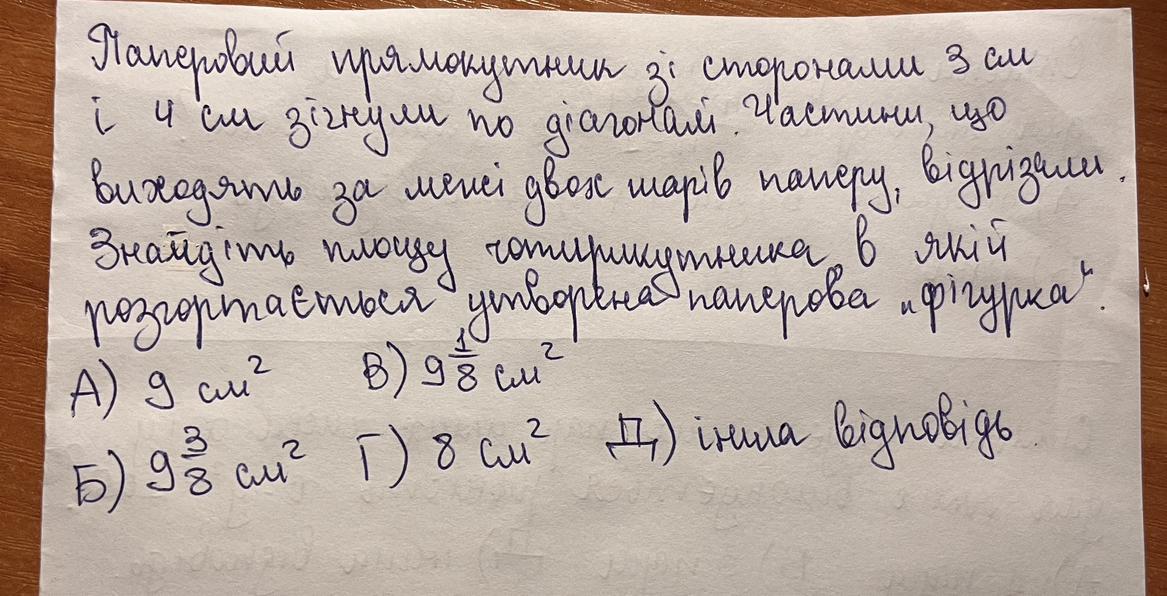 Паперовий прямокутник зі сторонами 3 см
і 4 см зігнули по діагоналі. Частини, що
виходять за межі двох шарів паперу, відрізали.
Знайдіть площу чотирикутника, в якій
розгортається утворена паперова „фігурка“.
А) 9 см² В) 9 1/8 см²
Б) 9 3/8 см² Г) 8 см² Д) інша відповідь